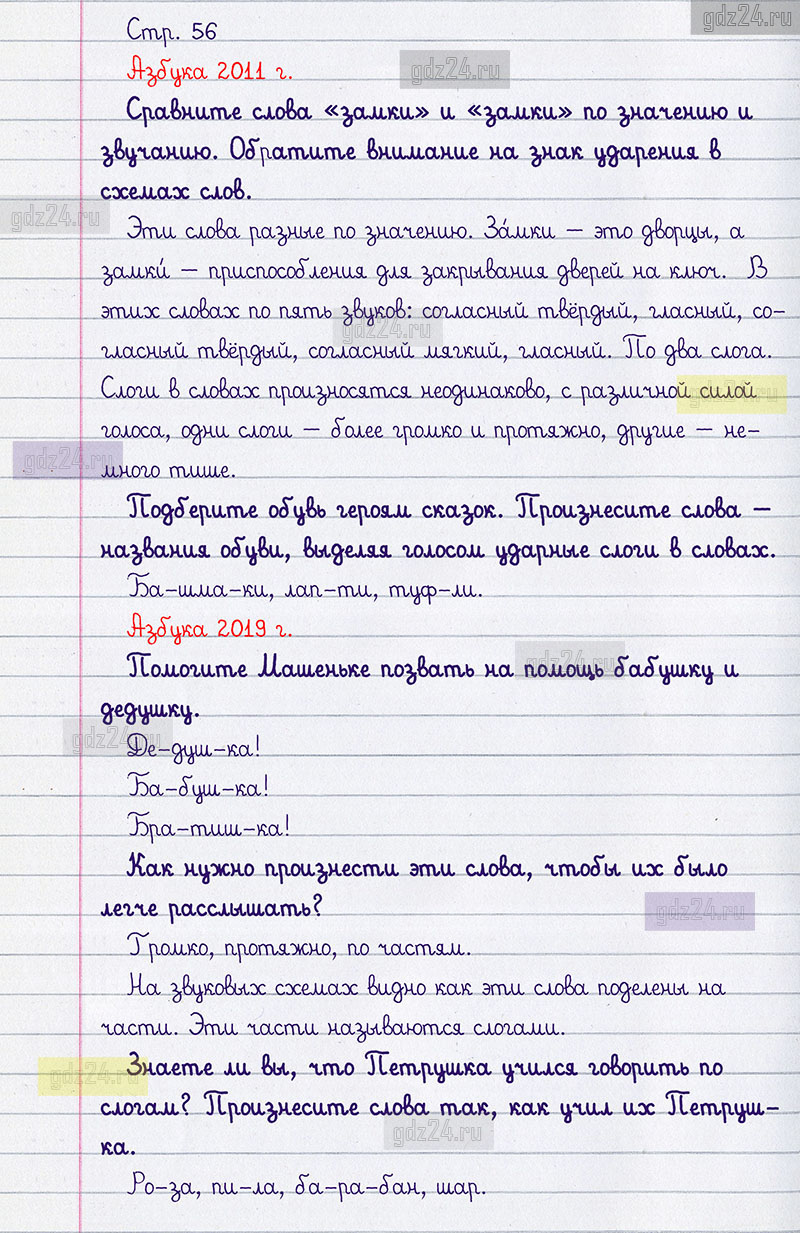 gdz24.ru
Стр. 56
Азбука 2011 г.
gdz24.ru
Сравните слова «замки» и «замки» по значению и
звучанию. Обратите внимание на знак ударения в
схемах слов.
gdz24.ru
Эти слова разные по значению. За́мки – это дворцы, а
замки́ – приспособления для закрывания дверей на ключ. В
этих словах по пять звуков: согласный твёрдый, гласный, со-
gdz24.ru
гласный твёрдый, согласный мягкий, гласный. По два слога.
Слоги в словах произносятся неодинаково, с различной силой
gdz24.ru
голоса, одни слоги – более громко и протяжно, другие – не-
gdz24.ru
много тише.
Подберите обувь героям сказок. Произнесите слова –
названия обуви, выделяя голосом ударные слоги в словах.
Ба-шма-ки, лап-ти, туф-ли.
Азбука 2019 г.
Помогите Машеньке позвать на помощь бабушку и
gdz24.ru
дедушку.
gdz24.ru
Де-душ-ка!
Ба-буш-ка!
Бра-тиш-ка!
Как нужно произнести эти слова, чтобы их было
легче расслышать?
gdz24.ru
Громко, протяжно, по частям.
На звуковых схемах видно как эти слова поделены на
части. Эти части называются слогами.
Знаете ли вы, что Петрушка учился говорить по
gdz24.ru
слогам? Произнесите слова так, как учил их Петруш-
gdz24.ru
ка.
Ро-за, пи-ла, ба-ра-бан, шар.